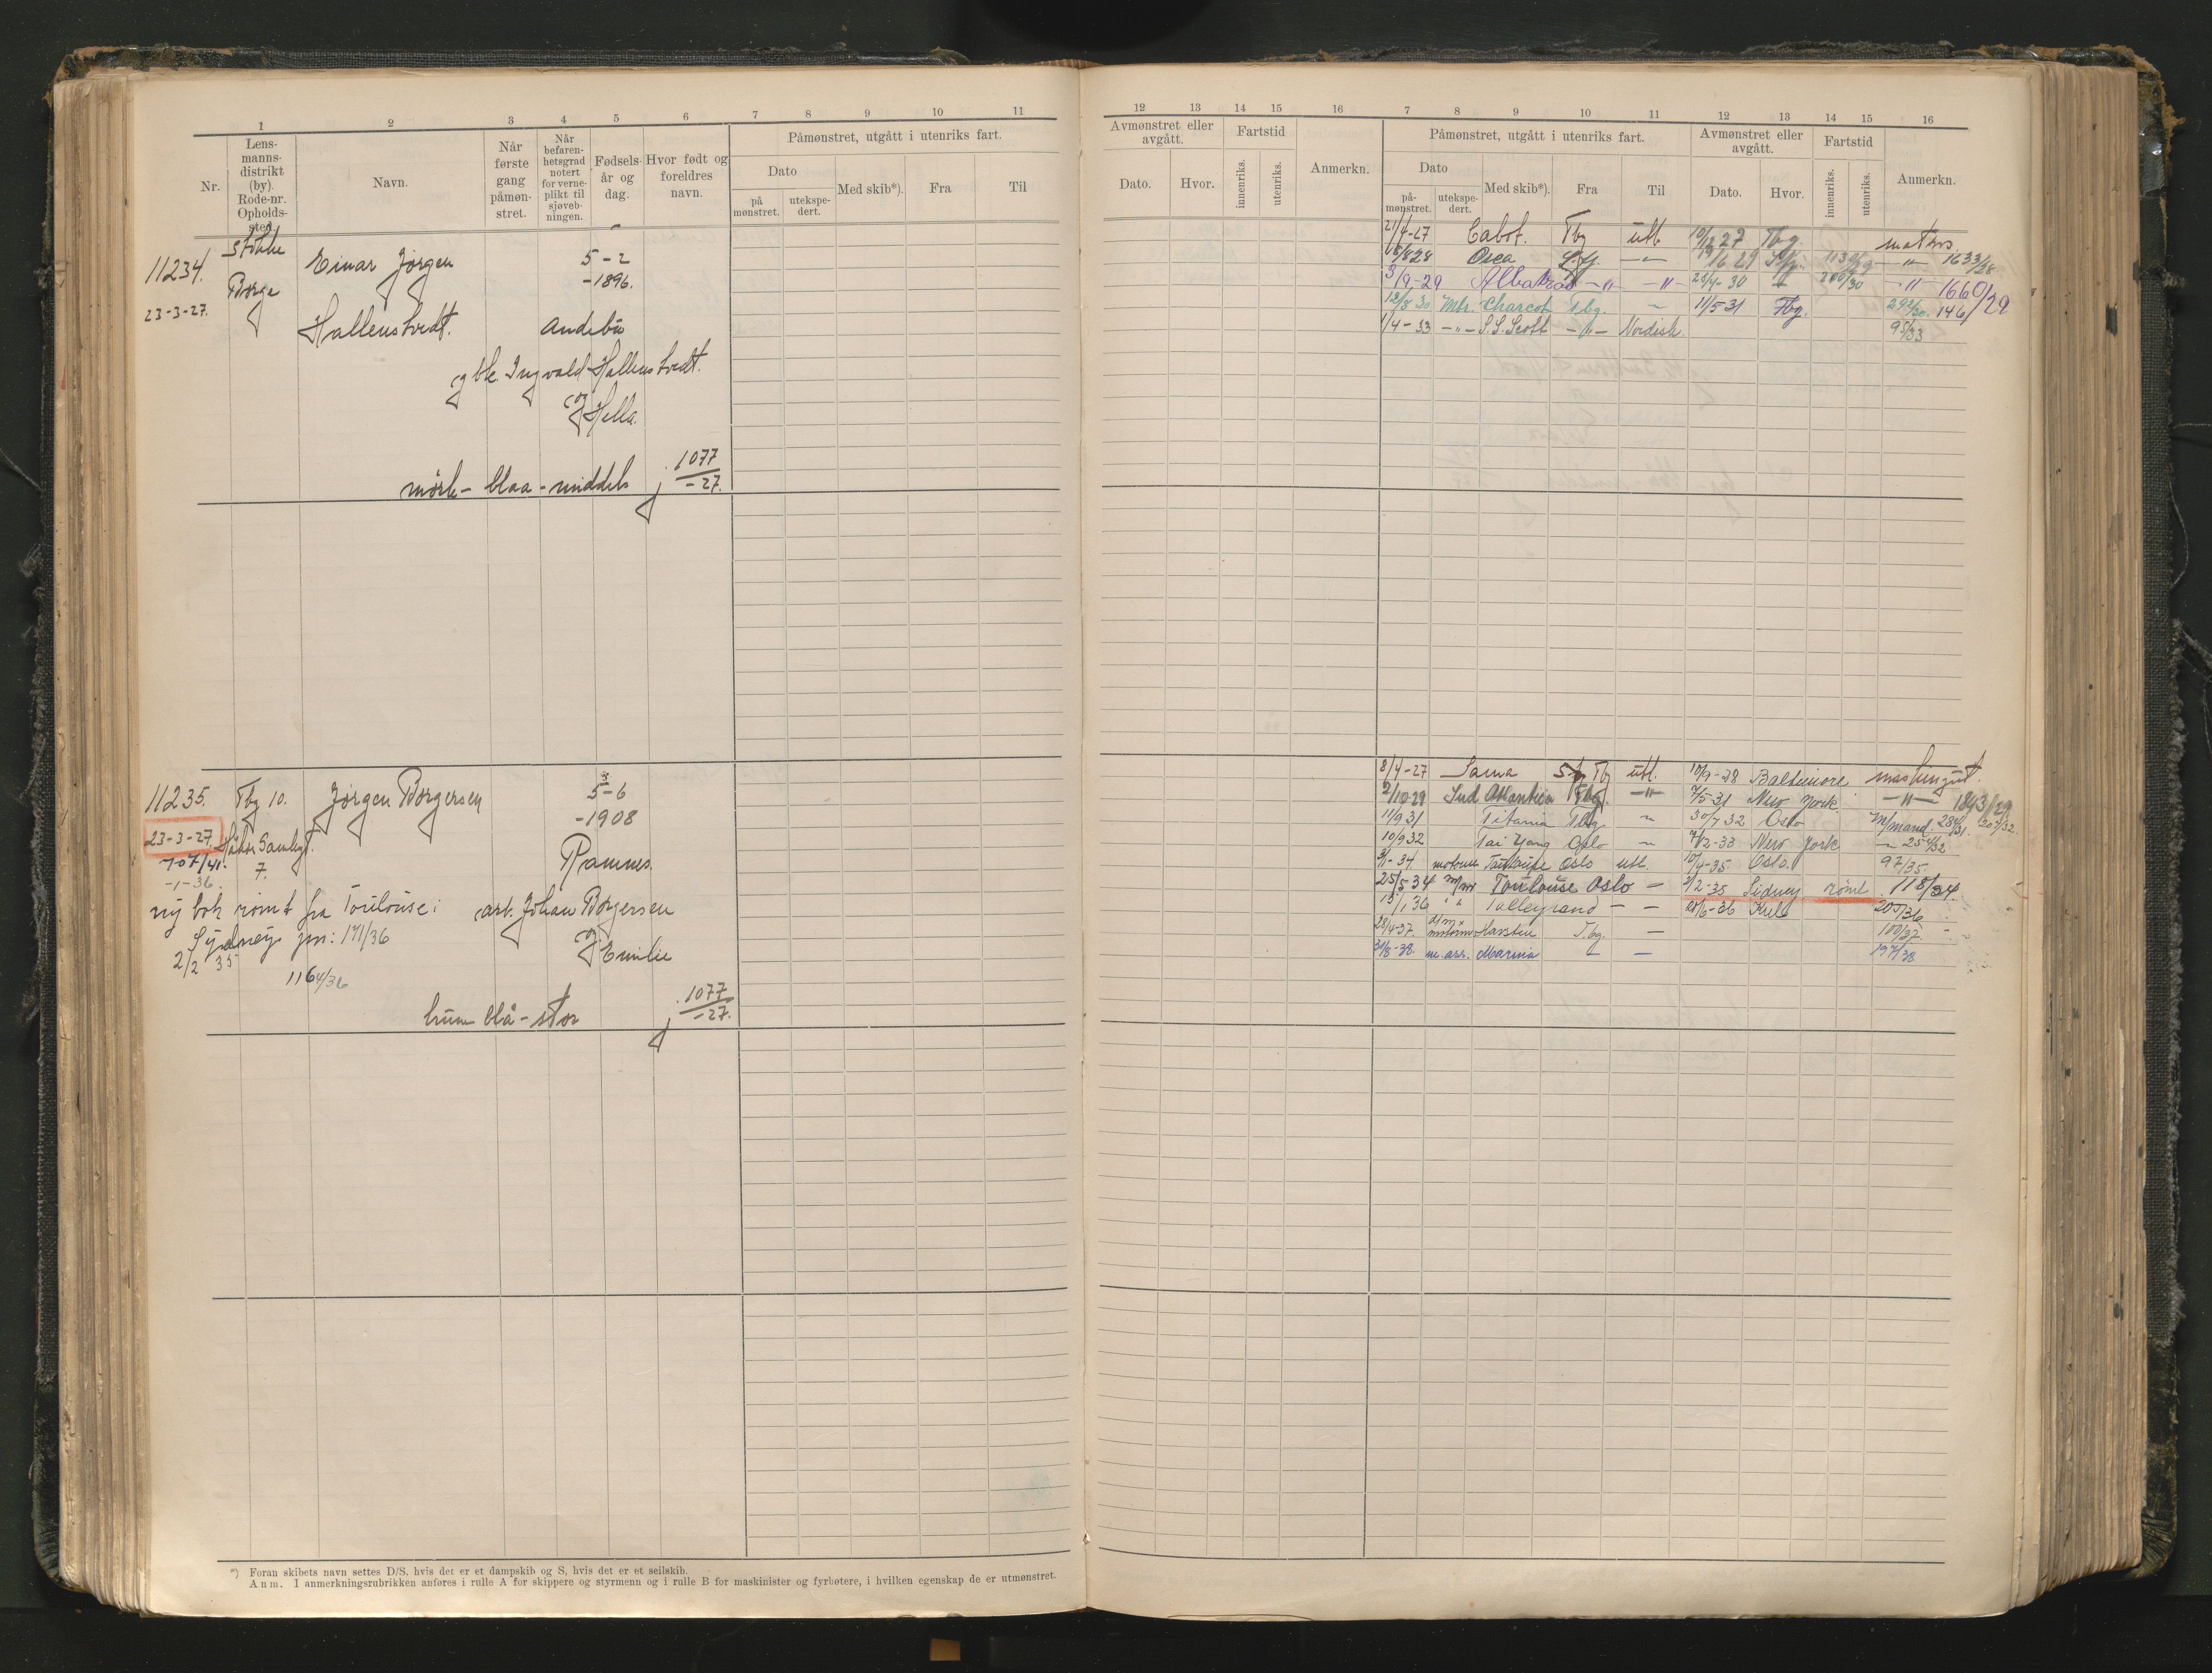 1 2 3 4 5 6 7 8 9 10 11
Nr.
Lens-
manns-
distrikt
(by).
Rode-nr.
Opholds-
sted.
Navn.
Når
første
gang
påmøn-
stret.
Når
befaren-
hetsgrad
notert
for verne-
plikt til
sjøveb-
ningen.
Fødsels-
år og
dag.
Hvor født og
foreldres
navn.
Påmønstret, utgått i utenriks fart.
Dato
på
mønstret.
utekspe-
dert.
Med skib*).
Fra
Til
11234.
23-3-27.
Stokke
Borge
Einar Jørgen
Hallenstvedt.
5-2
-1896.
Andebu
gbr. Ingvald Hallenstvedt.
og Hella.
mørk- blaa - middels
j 1077
-27.
11235.
23-3-27.
707/41.
-1-36.
Tbg 10.
7.
Jørgen Borgersen
5-6
-1908
Ramnes.
ny bok rømt fra Toulouse i
Sydney jnr: 171/36
2/2 35
1164/36
arb. Johan Borgersen
og Emilie
brun blå - stor
j 1077
-27.
*) Foran skibets navn settes D/S, hvis det er et dampskib og S, hvis det er et seilskib.
Anm. I anmerkningsrubrikken anføres i rulle A for skippere og styrmenn og i rulle B for maskinister og fyrbøtere, i hvilken egenskap de er utmønstret.
12 13 14 15 16 7 8 9 10 11 12 13 14 15 16
Avmønstret eller
avgått.
Dato.
Hvor.
Fartstid
innenriks.
utenriks.
Anmerkn.
Påmønstret, utgått i utenriks fart.
Dato
på-
mønstret.
utekspe-
dert.
Med skib*).
Fra
Til
Avmønstret eller
avgått.
Dato.
Hvor.
Fartstid
innenriks.
utenriks.
Anmerkn.
21/4-27 Cabot. Tbg utl 10/12 27 Tbg. matros
18/8 28 Orca Sfj. -"- 19/6 29 Sfj. -"- 1633/28
3/9-29 Albatros -"- -"- 23/4-30 -"- 200/30 -"- 1660/29
12/8 30 Mtr. Charcot Tbg. - 11/5 31 Tbg. 292/30. 146/
1/4-33 -"- S.S. Scott -"- Nordish. 95/33
8/4-27 Sama Tbg utl. 10/9-28 Baltimore maskingut.
2/10 29 Sud Atlantica Tbg. -"- 7/5-31 New York -"- 1843/29
11/9 31 Titania Tbg - 30/7 32 Oslo M/mand. 284/31. 207/32.
10/9 32 Tai Yang Oslo - 7/12-33 New York - 254/32
3/1-34 motorm Toulouse Oslo utl. 10/4-35 Oslo. 97/35
25/5 34 m/m Toulouse Oslo - 2/2-35 Sidney rømt. 118/34.
15/1 36 " " Talleyrand - - 20/6-36 Kiel 205/36
28/4-37. motorm Havsten Tbg. - 100/37.
31/8-38. m. ass. Marina - - 197/38